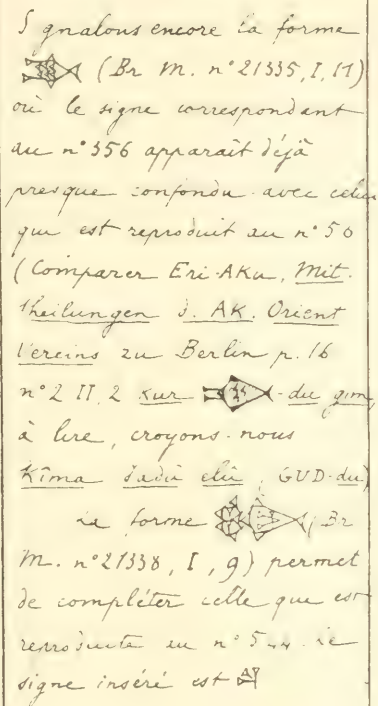 Signalons encore la forme
(Br M. n° 21335, I, 11)
où le signe correspondant
au n° 356 apparaît déjà
presque confondu avec celui
qui est reproduit au n° 50
(Comparer Eri-Aku, Mit-
theilungen d. AK. Orient
Vereins zu Berlin p. 16
n° 2 II, 2 Kur -du gim,
à lire, croyons-nous
Kîma šadû elû, GUD-du)
La forme (Br
M. n° 21338, I, 9) permet
de compléter celle que est
reproduite au n° le
signe inséré est